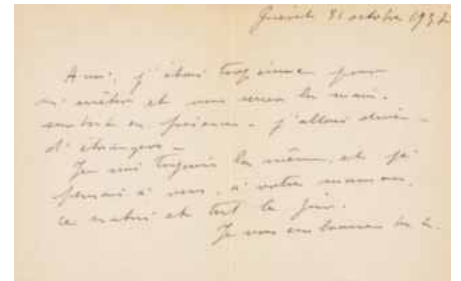 31 octobre 1932
Ami, j'étais trop émue pour
m'arrêter et vous serrer la main.
en présence - j'allais dire -
d'étrangers -
Je suis toujours la même, et j'ai
pensé à vous, à votre maman,
ce matin et tout le jour.
Je vous embrasse